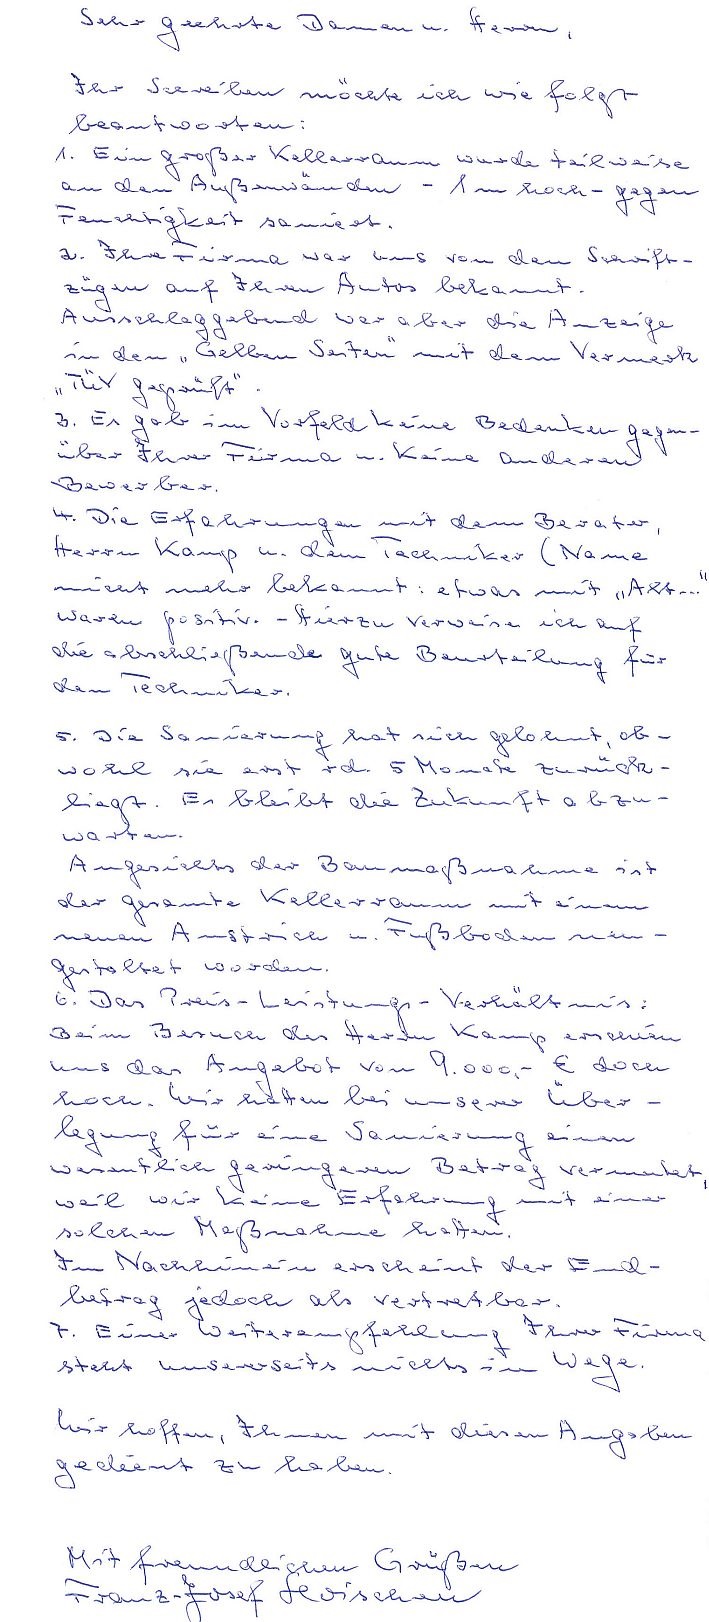 Sehr geehrte Damen u. Herren,
Ihr Schreiben möchte ich wie folgt
beantworten:
1. Ein großer Kellerraum wurde teilweise
an den Außenwänden - 1 m hoch - gegen
Feuchtigkeit saniert.
2. Ihre Firma war uns von den Schrift-
zügen auf Ihren Autos bekannt.
Ausschlaggebend war aber die Anzeige
in den „Gelben Seiten" mit dem Vermerk
„TÜV geprüft".
3. Es gab im Vorfeld keine Bedenken gegen-
über Ihrer Firma u. keine anderen
Bewerber.
4. Die Erfahrungen mit dem Berater,
Herrn Kamp u. dem Techniker (Name
nicht mehr bekannt: etwas mit „Alt..."
waren positiv. - Hierzu verweise ich auf
die abschließende gute Beurteilung für
den Techniker.
5. Die Sanierung hat sich gelohnt, ob-
wohl sie erst rd. 5 Monate zurück-
liegt. Es bleibt die Zukunft abzu-
warten.
Angesichts der Baumaßnahme ist
der gesamte Kellerraum mit einem
neuen Anstrich u. Fußboden neu-
gestaltet worden.
6. Das Preis-Leistungs-Verhältnis:
Beim Besuch des Herrn Kamp erschien
uns das Angebot von 9.000,- € doch
hoch. Wir hatten bei unserer Über-
legung für eine Sanierung einen
wesentlich geringeren Betrag vermutet,
weil wir keine Erfahrung mit einer
solchen Maßnahme hatten.
Im Nachhinein erscheint der End-
betrag jedoch als vertretbar.
7. Einer Weiterempfehlung Ihrer Firma
steht unsererseits nichts im Wege.
Wir hoffen, Ihnen mit diesen Angaben
gedient zu haben.
Mit freundlichen Grüßen
Franz-Josef Hoischen